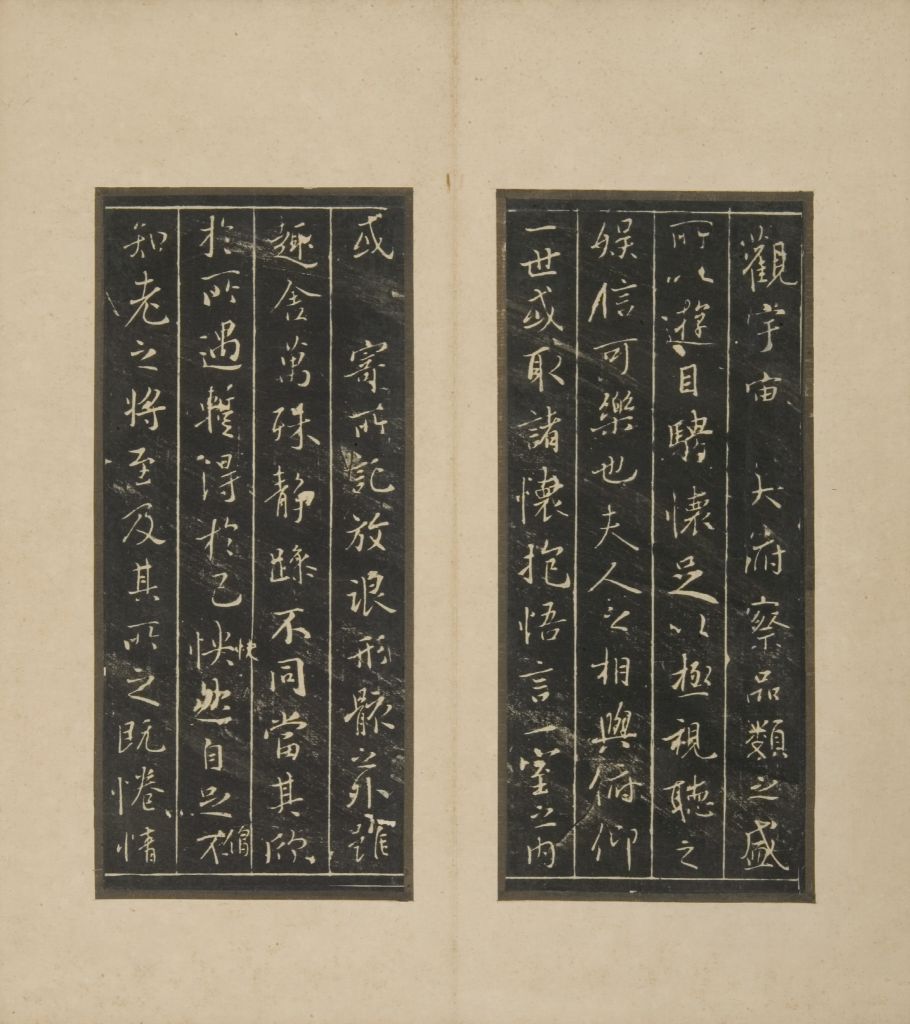 觀宇宙 大俯察品類之盛
所以遊目騁懷足以極視聽之
娛信可樂也夫人之相與俯仰
一世或取諸懷抱悟言一室之內
或 寄所託放浪形骸之外雖
趣舍萬殊静躁不同當其欣
於所遇蹔得於己怏快然自足不僧
知老之將至及其所之既惓情